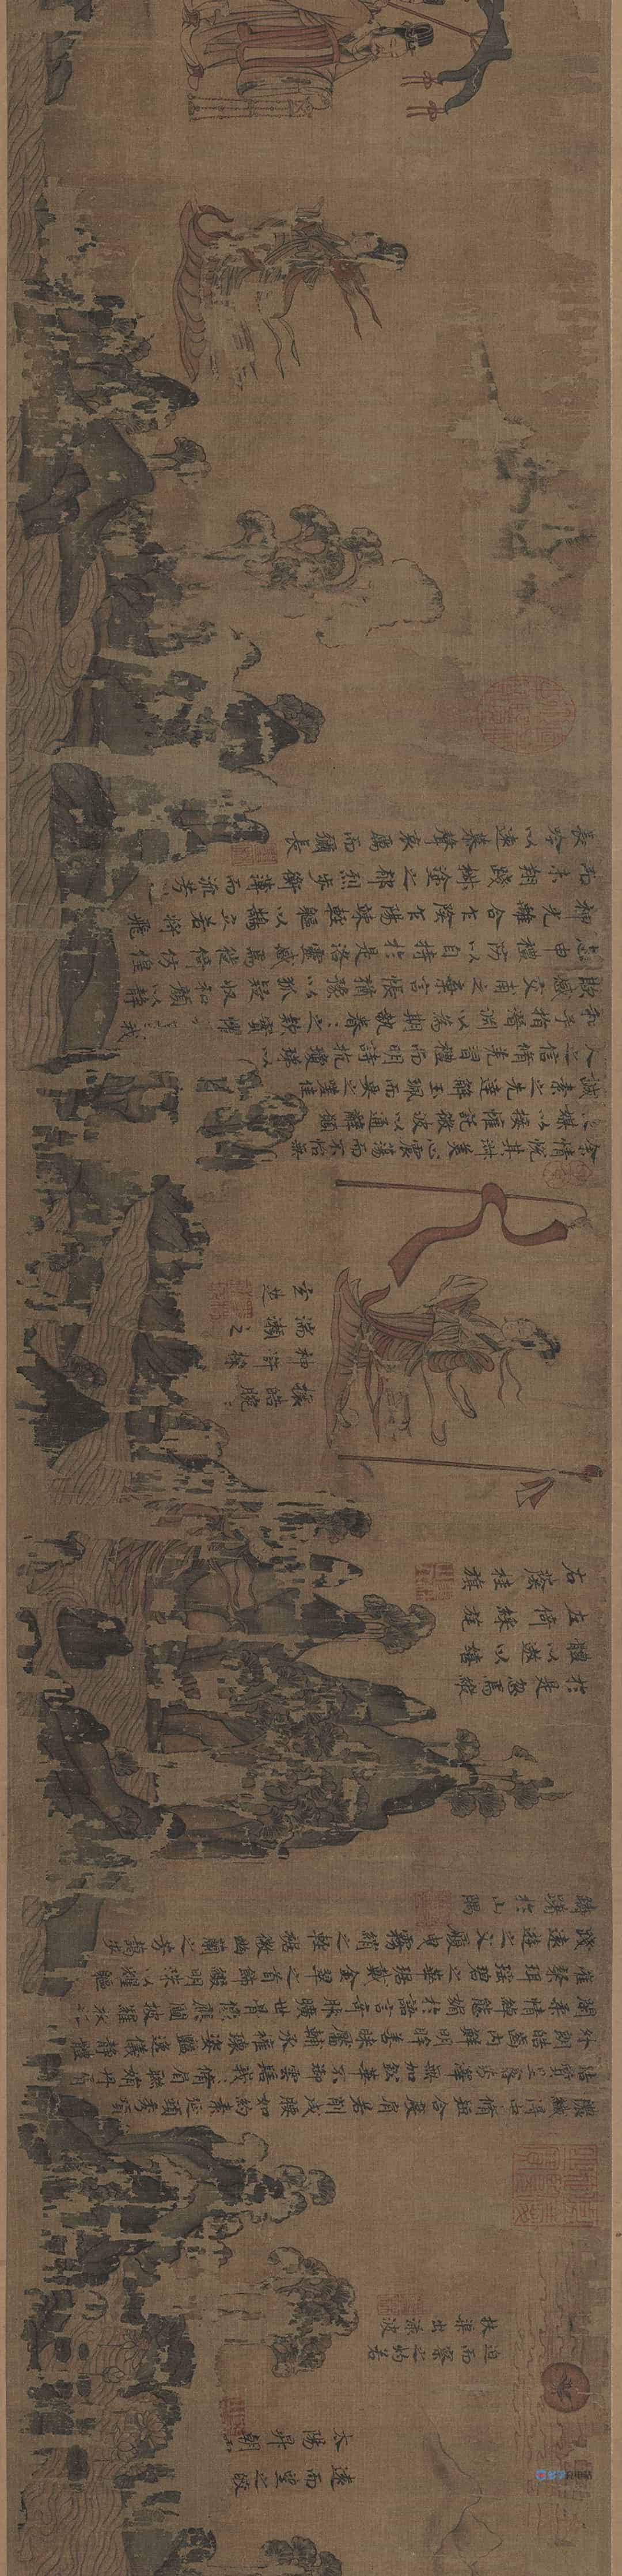 遠而望之皎
太陽昇朝
迫而察之灼若
扶渠出淥波
襛纖得中脩短合度肩若削成腰如約素延頸秀項
皓質呈露芳澤無加鉛華不御雲髻峨峨脩眉聯娟丹脣
外朗皓齒內鮮明眸善睞靨輔承權瓌姿豔逸儀靜體
閑柔情綽態媚於語言奇服曠世骨像應圖披羅衣之
璀粲珥瑤碧之華琚戴金翠之首飾綴明珠以耀軀
踐遠遊之文履曳霧綃之輕裾微幽蘭之芳藹步
踟躕於山隅
於是忽焉縱
體以遨以嬉
左倚綵旄
右蔭桂旗
攘皓腕於
神滸採
湍瀨之
玄芝
余情悅其淑美心震蕩而不怡無
良媒以接懽託微波以通辭願
誠素之先達解玉珮而要之嗟佳
人信脩羌習禮而明詩抗瓊珶以
和予指潛淵以為期執眷眷之款實懼我
欺感交甫之棄言悵猶豫以狐疑收和顏以靜
志申禮防以自持於是洛靈感焉徙倚仿偟
神光離合乍陰乍陽竦輕軀以鶴立若將飛
而未翔踐椒塗之郁烈步蘅薄而流芳
長吟以遠慕聲哀厲而彌長